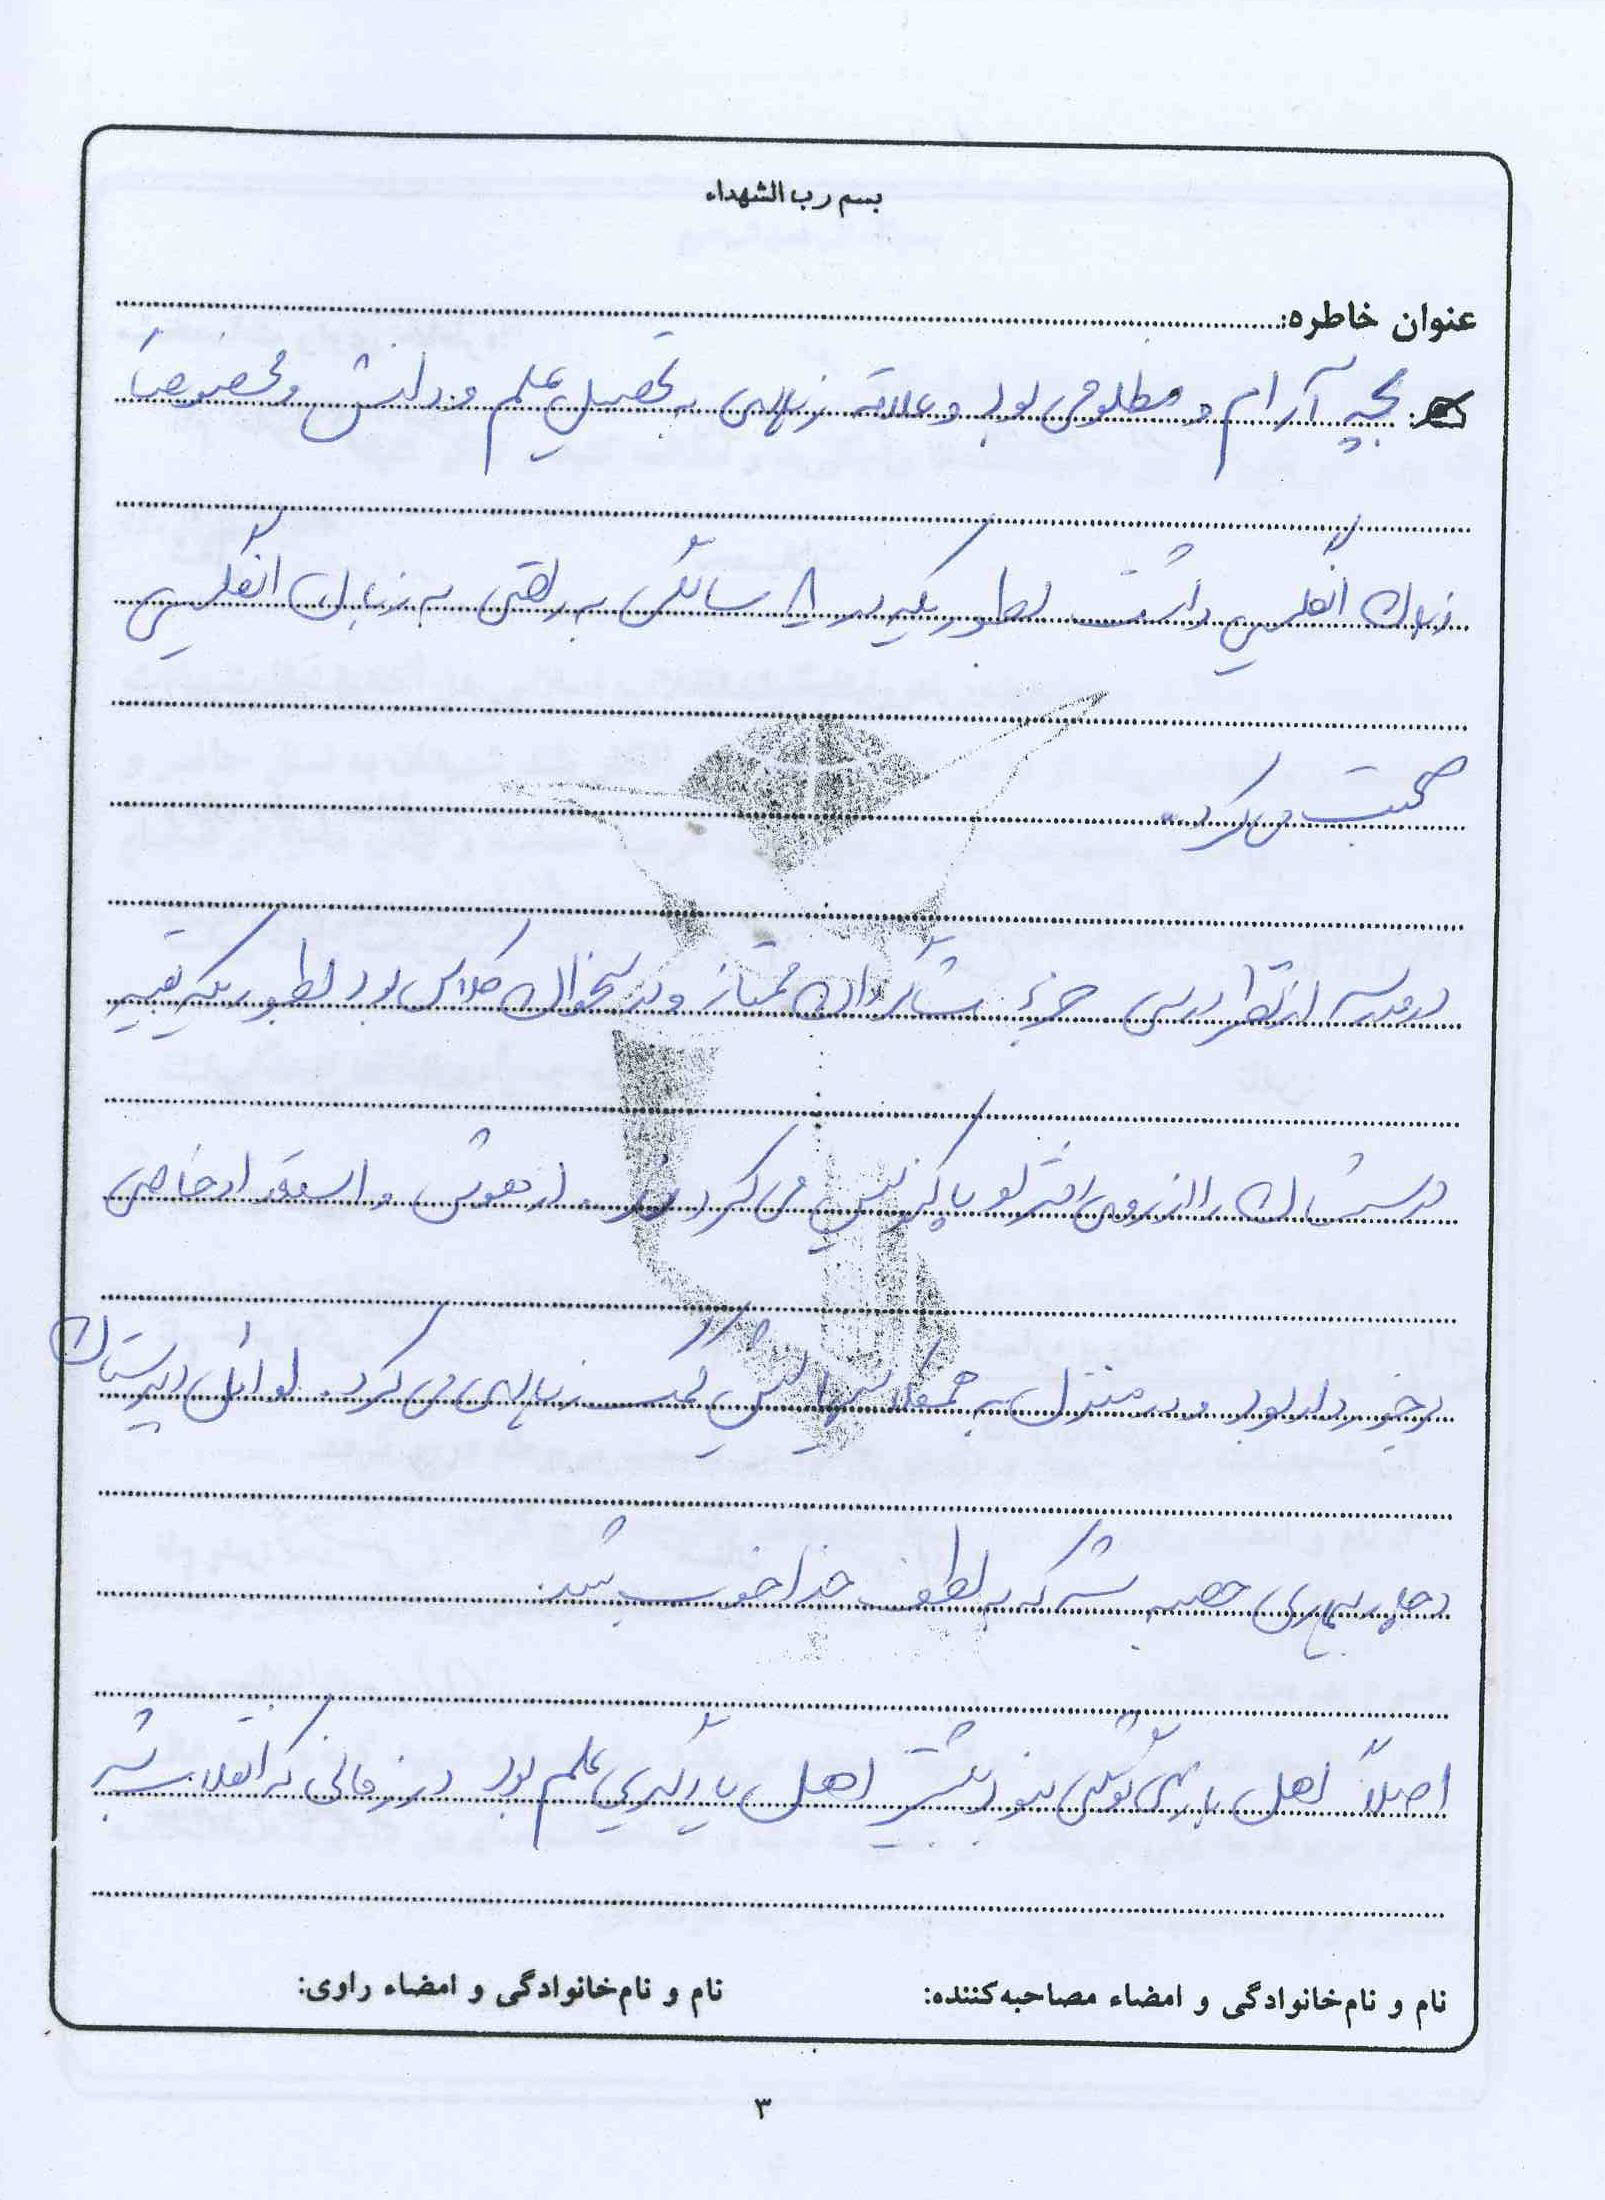 بسم رب الشهداء
عنوان خاطره:
بچه آرام و مظلومی بود و علاقه زیادی به تحصیل علم و دانش و مخصوصاً
زبان انگلیسی داشت بطوریکه در ۸ سالگی به راحتی به زبان انگلیسی
صحبت می کرد.
در مدرسه از نظر درسی جزء شاگردان ممتاز و درسخوان کلاس بود بطوریکه بقیه
درسشان را از روی دفتر او پاکنویس می کردند. از هوش و استعداد خاصی
برخوردار بود و در منزل به همکلاسیهایش کمک زیادی می کرد. اوائل دبیرستان
دچار بیماری حصبه شد که به لطف خدا خوب شد.
اصلاً اهل بازی گوشی نبود بیشتر اهل یادگیری علم بود در زمانی که انقلاب شد
نام و نام‌خانوادگی و امضاء مصاحبه‌کننده: نام و نام‌خانوادگی و امضاء راوی:
۳